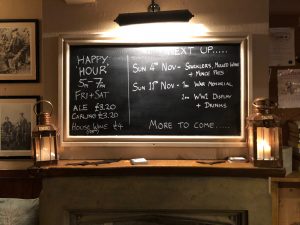 HAPPY
HOUR
5pm-7pm
FRI + SAT
ALE £3.20
CARLING £3.20
HOUSE WINE £4
NEXT UP.....
SUN 4TH NOV - SPARKLERS, MULLED WINE
+ MINCE PIES
SUN 11TH NOV - 1pm WAR MEMORIAL
2pm WW1 DISPLAY
+ DRINKS
MORE TO COME.....